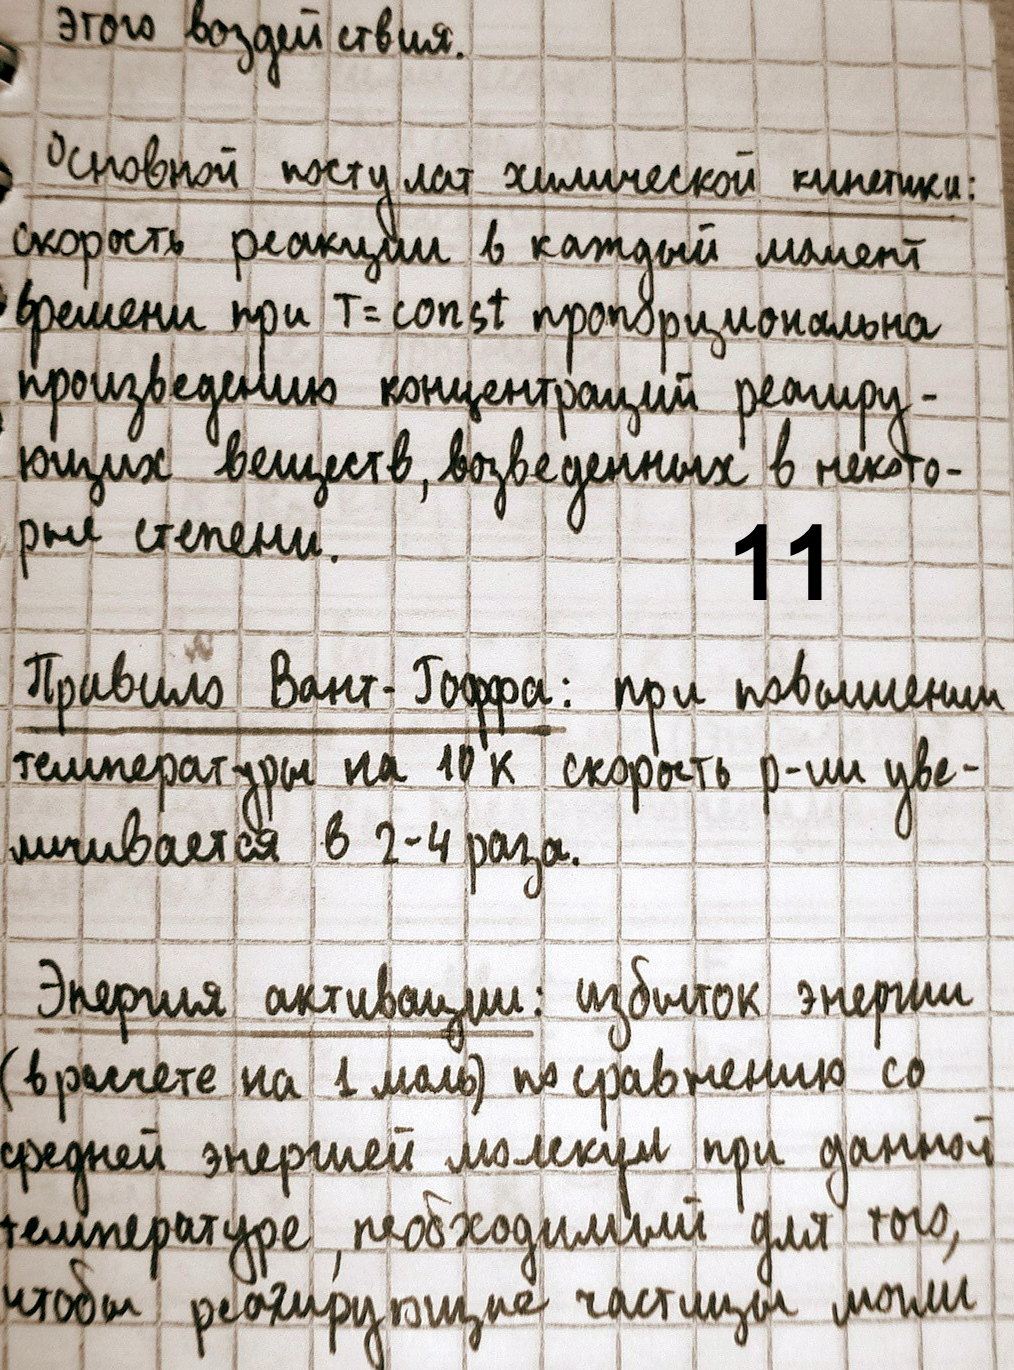 этого воздействия.
Основной постулат химической кинетики:
скорость реакции в каждый момент
времени при T=const пропорциональна
произведению концентраций реагиру-
ющих веществ, возведенных в некото-
рые степени.
11
Правило Вант-Гоффа: при повышении
температуры на 10 К скорость р-ии уве-
личивается в 2-4 раза.
Энергия активации: избыток энергии
(в расчете на 1 моль) по сравнению со
средней энергией молекул при данной
температуре, необходимый для того,
чтобы реагирующие частицы могли